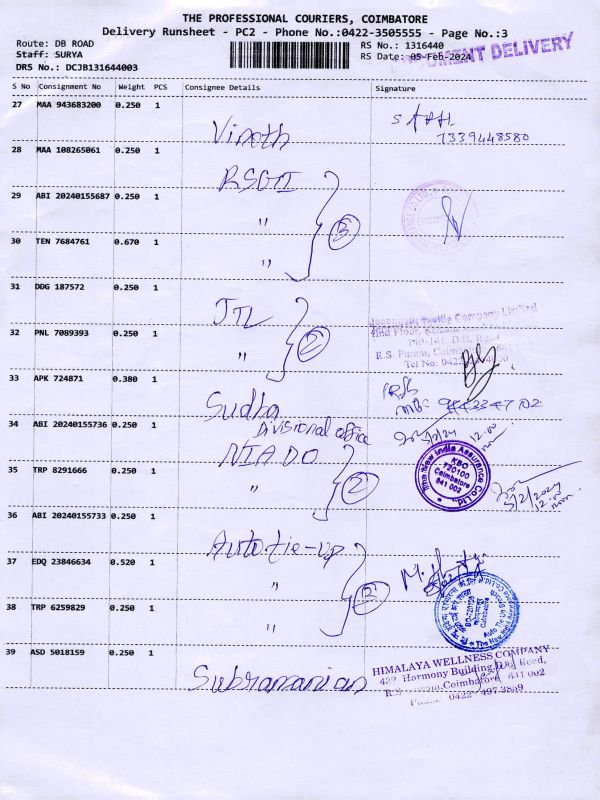 THE PROFESSIONAL COURIERS, COIMBATORE
Delivery Runsheet - PC2 - Phone No.:0422-3505555 - Page No.:3
Route: DB ROAD
RS No.: 1316440
DOCUMENT DELIVERY
Staff: SURYA
RS Date: 05-Feb-2024
DRS No.: DCJB131644003
S No Consignment No Weight PCS Consignee Details Signature
27 MAA 943683200 0.250 1
Vinoth
7339448580
28 MAA 108265061 0.250 1
RSGTI
29 ABI 20240155687 0.250 1
"
3
30 TEN 7684761 0.670 1
"
31 DDG 187572 0.250 1
JTL
Textile Company Limited
D.B. Road
R.S. Puram, Coimbatore
Tel No: 0422
32 PNL 7089393 0.250 1
"
2
33 APK 724871 0.380 1
Sudha
34 ABI 20240155736 0.250 1
Divisional office
NIA DO
12.00
noon
The New India Assurance Co. Ltd.
KBO
720100
Coimbatore
641 002
35 TRP 8291666 0.250 1
"
2
5/2/2024
12.00
noon
36 ABI 20240155733 0.250 1
Auto tie-up
37 EDQ 23846634 0.520 1
"
3
38 TRP 6259829 0.250 1
"
Coimbatore
Auto Tie Up
39 ASD 5018159 0.250 1
Subramanian
HIMALAYA WELLNESS COMPANY
432, Harmony Building D.B. Road,
R.S. Puram, Coimbatore 641 002
Phone: 0422- 497 3859